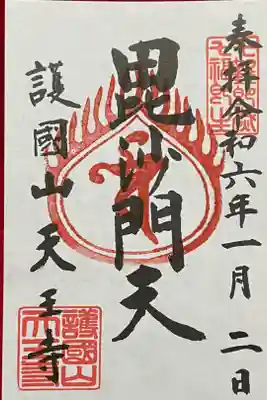 奉拝令和六年一月二日
毘沙門天
護國山天王寺
護國山